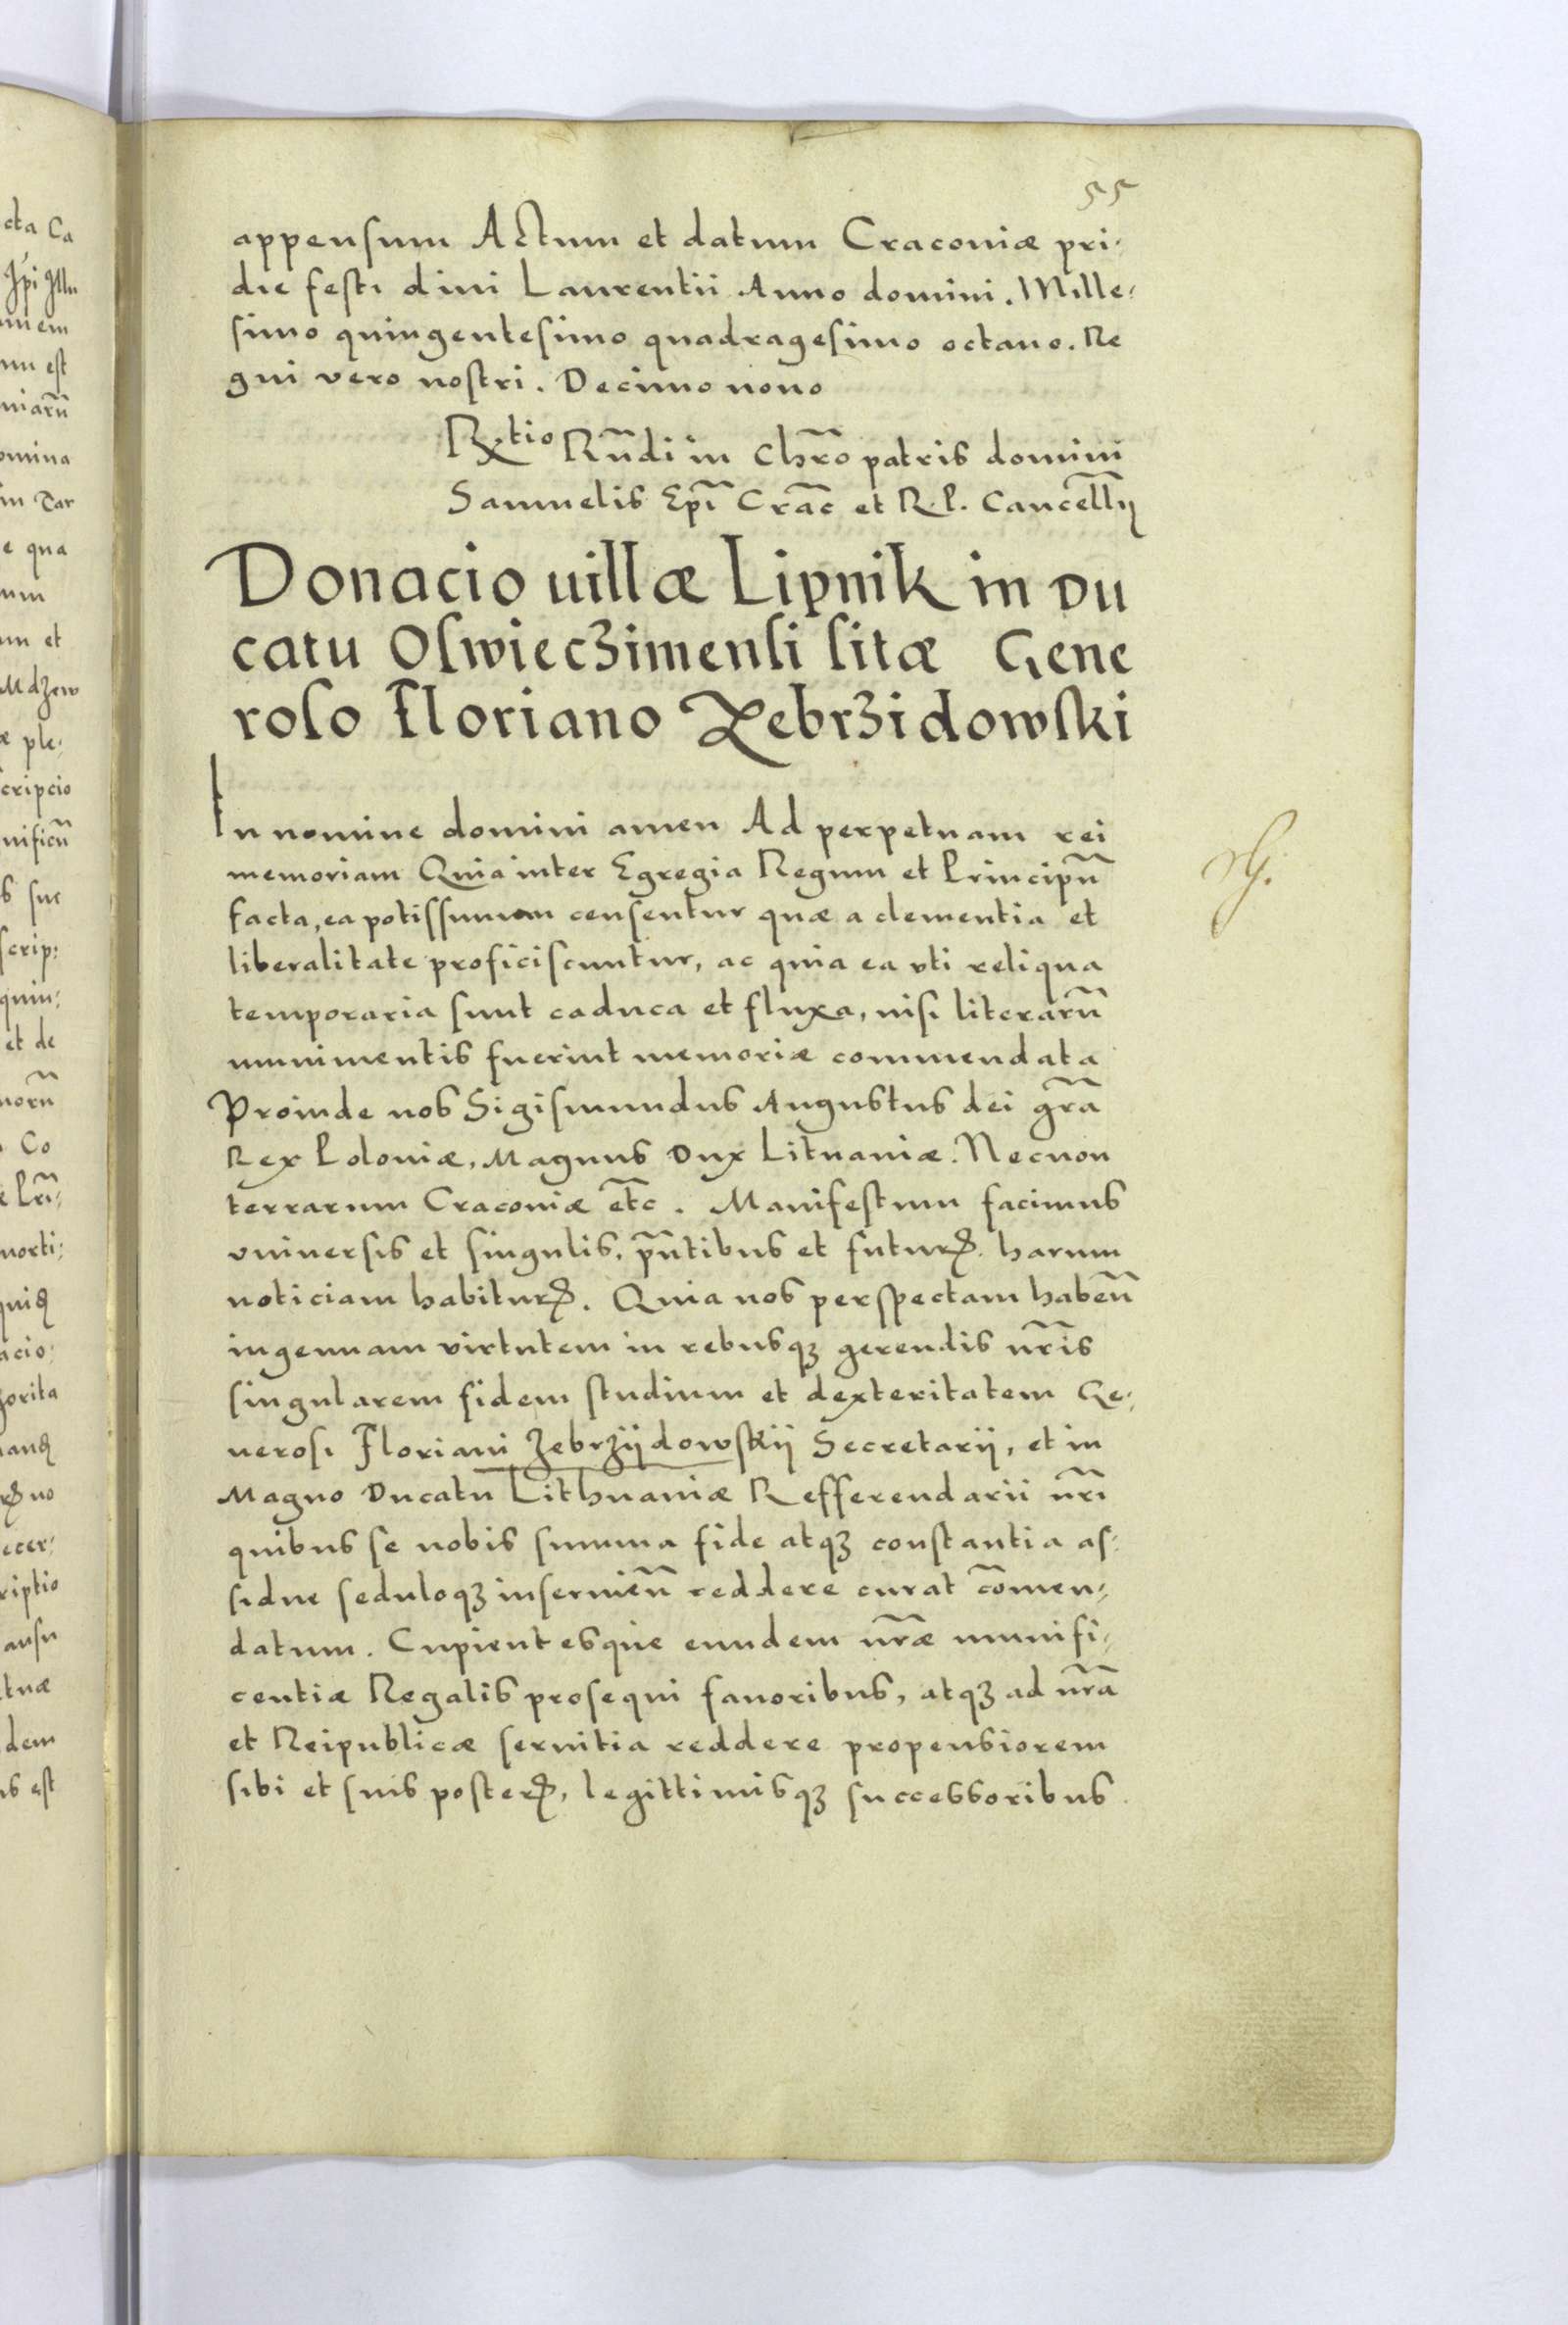 55
appensum Actum et datum Craconiæ pri-
die festi diui Laurentii Anno domini. Mille-
simo quingentesimo quadragesimo octauo. Re
gni vero nostri. Decimo nono
Rtio Rndi in Chro patris domini
Samuelis Epi Crac et R. P. Cancellij
Donacio uillæ Lipnik in Du
catu Oswieczimensi sitæ Gene
roso Floriano Zebrzidowski
In nomine domini amen Ad perpetuam rei
memoriam Quia inter Egregia Regum et Principū
facta, ea potissimum censentur quæ a clementia et
liberalitate proficiscuntur, ac quia ea vti reliqua
temporaria sunt caduca et fluxa, nisi literarū
munimentis fuerint memoriæ commendata
Proinde nos Sigismundus Augustus dei gra
Rex Poloniæ, Magnus Dux Lituaniæ. Necnon
terrarum Craconiæ etc. Manifestum facimus
vniuersis et singulis, pñtibus et futurꝭ. harum
noticiam habiturꝭ. Quia nos perspectam habeñ
ingenuam virtutem in rebusqꝫ gerendis nris
singularem fidem studium et dexteritatem Ge-
nerosi Floriani Zebrzijdowskij Secretarij, et in
Magno Ducatu Lithuaniæ Refferendarii nri
quibus se nobis summa fide atqꝫ constantia as-
sidue seduloqꝫ inseruieñ reddere curat cōmen-
datum. Cupientesque eundem nræ munifi-
centiæ Regalis prosequi fauoribus, atqꝫ ad nra
et Reipublicæ seruitia reddere propensiorem
sibi et suis posterꝭ, legittimisqꝫ successoribus